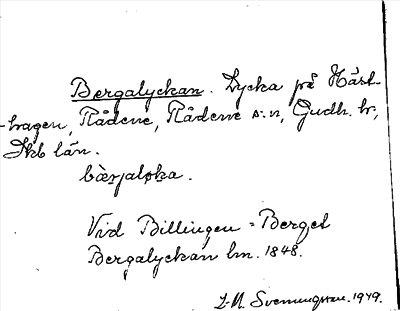 Bergalyckan. Lycka på Häst-
hagen, Rådene, Rådene s:n, Gudh. hr,
Skb län.
bær̀jaløka.
Vid Billingen = Berget
Bergalyckan lm. 1848.
L-M. Svenungsson. 1949.